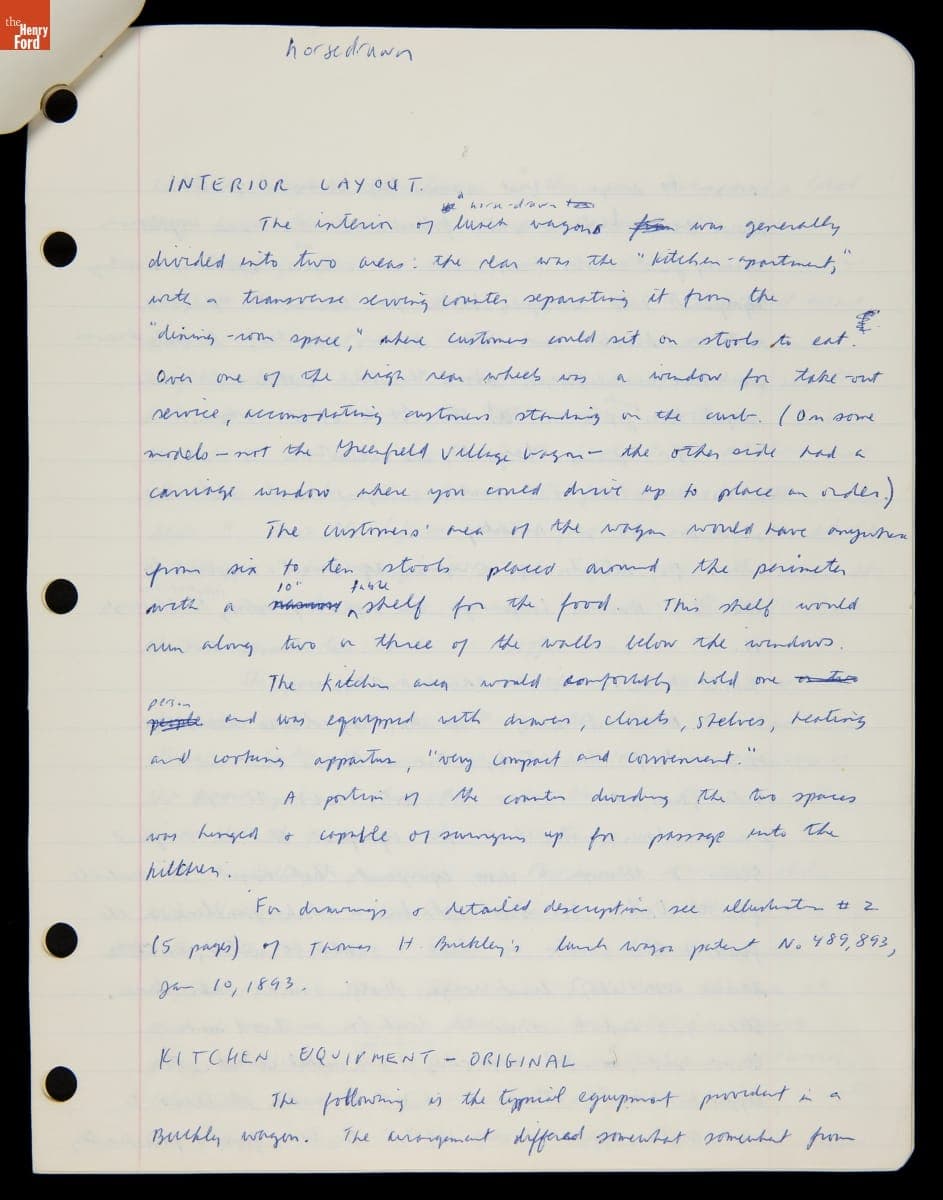 the
Henry
Ford
horsedrawn
INTERIOR LAYOUT.
a horse-drawn
The interior of lunch wagons was generally
divided into two areas: the rear was the "kitchen-apartment,"
with a transverse serving counter separating it from the
"dining-room space," where customers could sit on stools to eat.
Over one of the high rear wheels was a window for take-out
service, accomodating customers standing on the curb. (On some
models - not the Greenfield Village wagon - the other side had a
carriage window where you could drive up to place an order.)
The customers' area of the wagon would have anywhere
from six to ten stools placed around the perimeter
10" table
with a narrow shelf for the food. This shelf would
run along two or three of the walls below the windows.
The kitchen area would comfortably hold one or two
person
people and was equipped with drawers, closets, shelves, heating
and cooking apparatus, "very compact and convenient."
A portion of the counter dividing the two spaces
was hinged & capable of swinging up for passage into the
kitchen.
For drawings & detailed description, see illustration #2
(5 pages) of Thomas H. Buckley's lunch wagon patent No 489,893,
Jan 10, 1893.
KITCHEN EQUIPMENT - ORIGINAL
The following is the typical equipment provided in a
Buckley wagon. The arrangement differed somewhat somewhat from